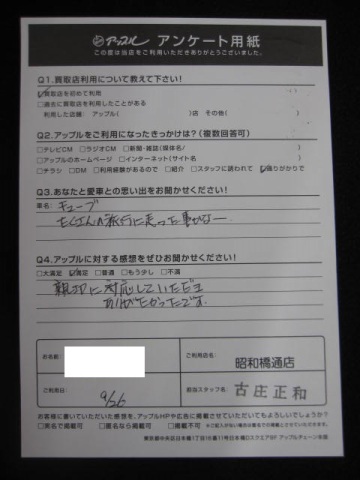 アップル アンケート用紙
この度は当店をご利用いただきありがとうございました。
Q1.買取店利用について教えて下さい!
☑買取店を初めて利用
□過去に買取店を利用したことがある
利用した店舗: アップル( )店 その他( )
Q2.アップルをご利用になったきっかけは?(複数回答可)
□テレビCM □ラジオCM □新聞・雑誌(媒体名/ )
□アップルのホームページ □インターネット(サイト名 )
□チラシ □DM □利用経験があるので □紹介 □スタッフに誘われて ☑通りがかりで
Q3.あなたと愛車との思い出をお聞かせください!
車名: キューブ
たくさんの旅行に走った事かなー
Q4.アップルに対する感想をぜひお聞かせください!
□大満足 ☑満足 □普通 □もう少し □不満
親切に対応していただき
ありがたかったです。
お名前
ご利用店名: 昭和橋通店
ご利用日 9/26
担当スタッフ名: 古庄正和
お客様に書いていただいた感想を、アップルHPや広告に掲載させていただいてもよろしいでしょうか?
□実名で掲載可 □匿名なら掲載可 □掲載不可
東京都中央区日本橋1丁目16番11号日本橋Dスクエア8F アップルチェーン本部